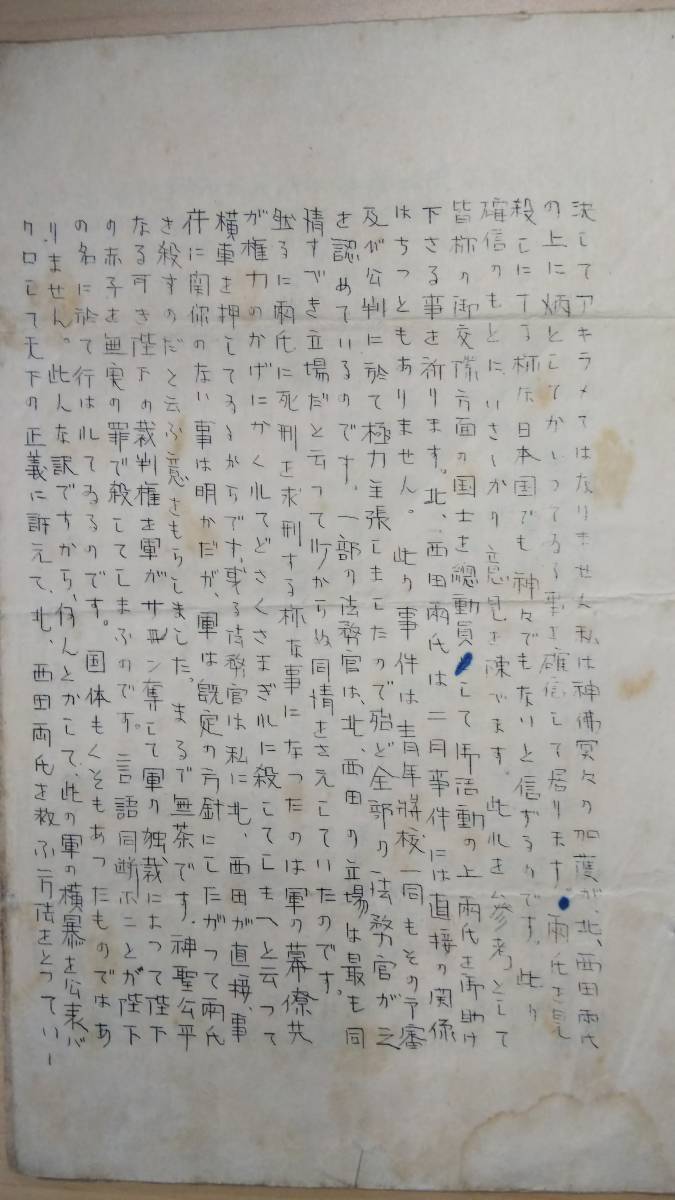 決してアキラメてはなりません、私は神佛冥々の加護が、北、西田両氏
の上に炳としてかゝつてゐる事を確信して居ります。両氏を見
殺しにする様な日本国でも神々でもないと信ずるのです。此の
確信のもとに、いさゝかの意見を陳べます。此れを参考として
皆様の御交際方面の国士を總動員して御活動の上両氏を御助け
下さる事を祈ります。北、西田両氏は二月事件には直接の関係
はちつともありません。此の事件は青年将校一同もその予審
及び公判に於て極力主張しましたので殆ど全部の法務官が之
を認めているのです。一部の法務官は、北、西田の立場は最も同
情すべき立場だと云つて心からぬ同情をさえしていたのです。
然るに両氏に死刑を求刑する様な事になったのは軍の幕僚共
が権力のかげにかくれてどさくさまぎれに殺してしまへと云つて
横車を押してゐるからです、或る法務官は私に北、西田が直接、事
件に関係のない事は明かだが、軍は既定の方針にしたがつて両氏
を殺すのだと云ふ意をもらしました。まるで無茶です、神聖公平
なる可き陛下の裁判権を軍がサン奪して軍の独裁によつて陛下
の赤子を無実の罪で殺してしまふのです。言語同断ふことが陛下
の名に於て行はれてゐるのです。国体もくそもあつたものではあ
りません。此んな訳ですから、何んとかして、此の軍の横暴を公表バ
クロして天下の正義に訴えて、北、西田両氏を救ふ方法をとつてい